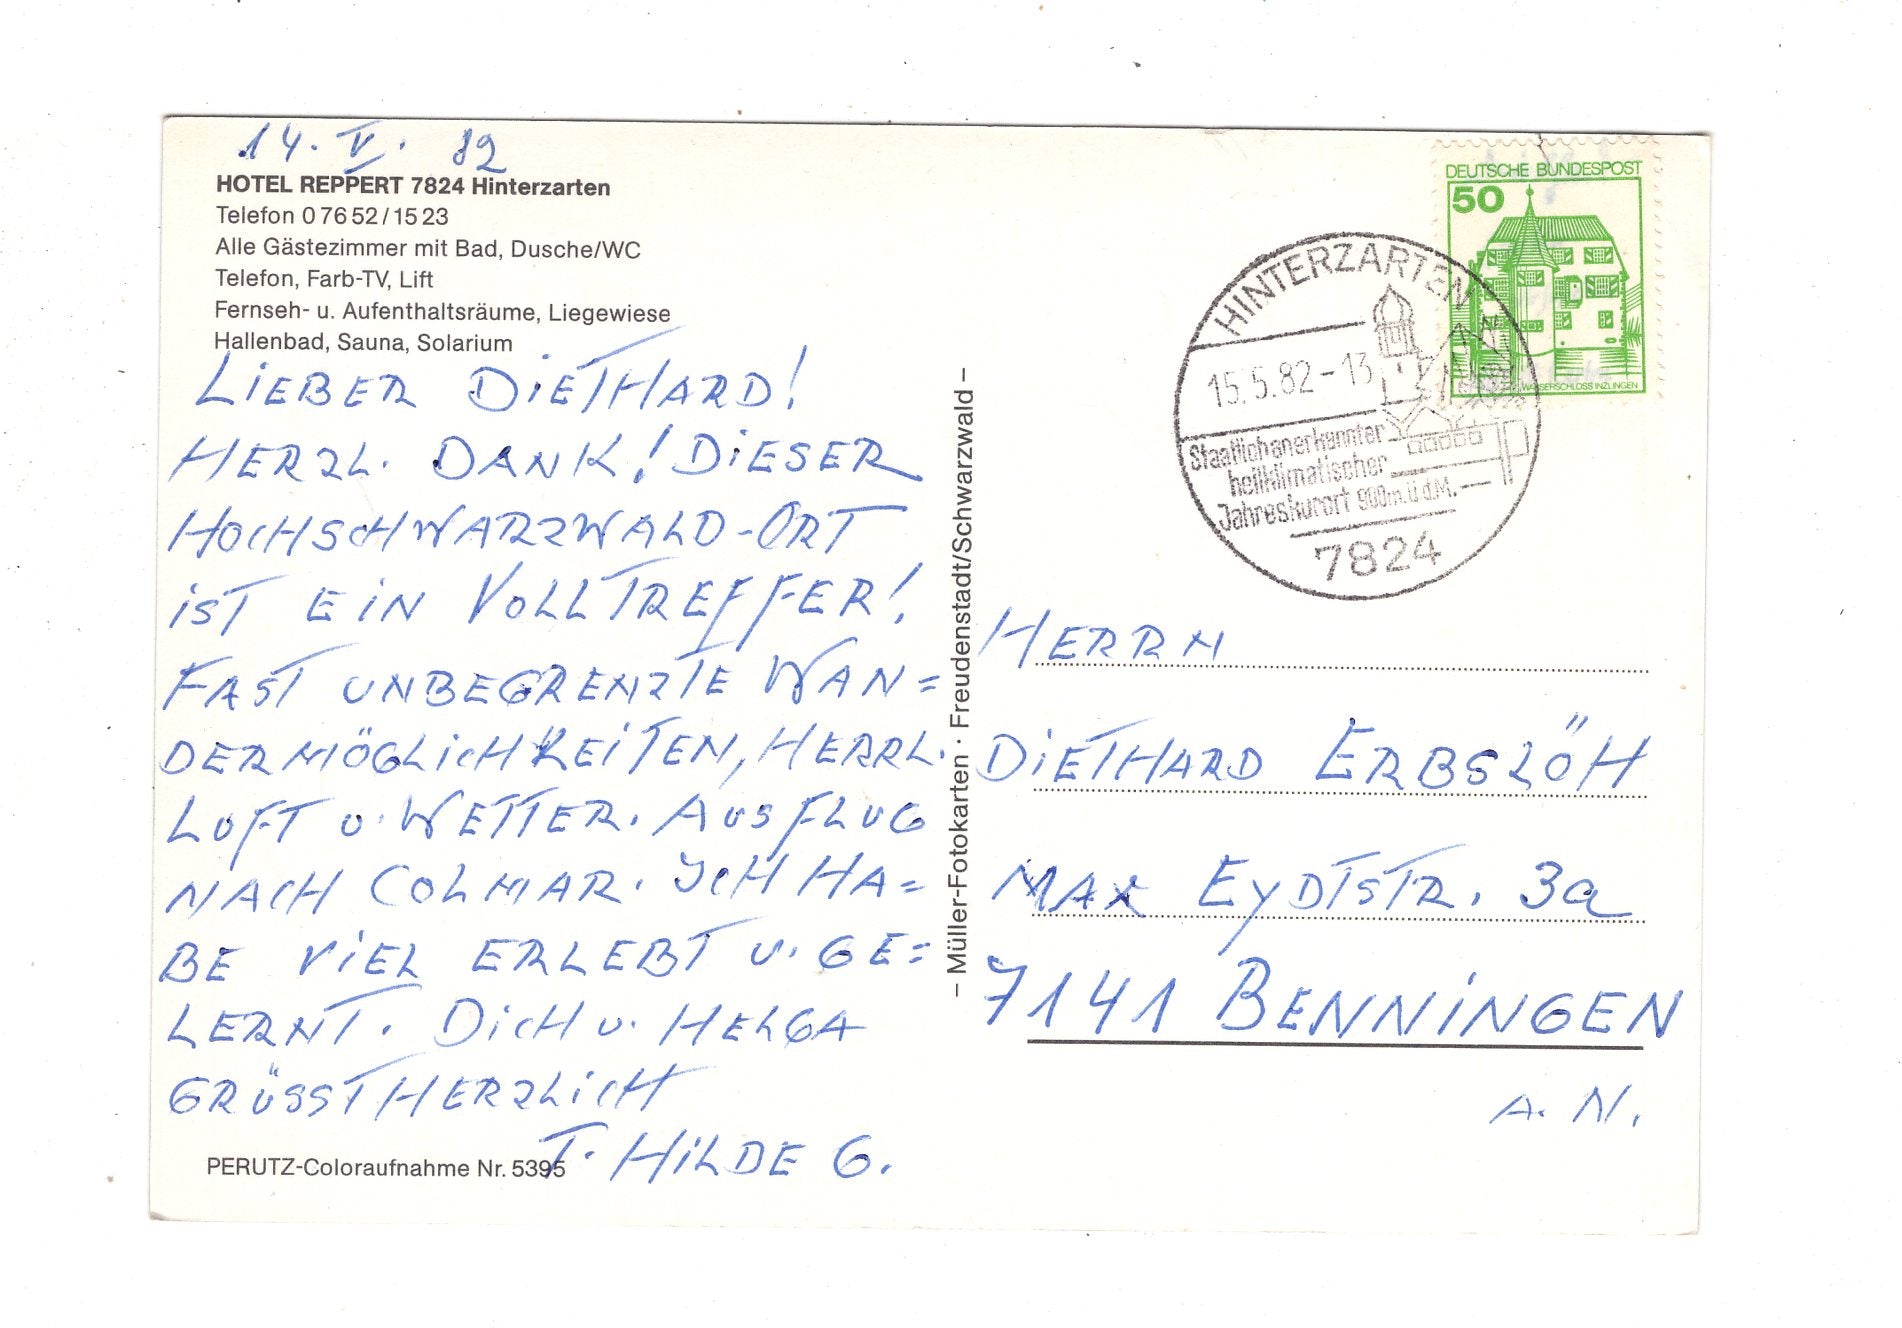 14. V. 82
HOTEL REPPERT 7824 Hinterzarten
Telefon 0 76 52 / 15 23
Alle Gästezimmer mit Bad, Dusche/WC
Telefon, Farb-TV, Lift
Fernseh- u. Aufenthaltsräume, Liegewiese
Hallenbad, Sauna, Solarium
LIEBER DIETHARD!
HERZL. DANK! DIESER
HOCHSCHWARZWALD-ORT
IST EIN VOLLTREFFER!
FAST UNBEGRENZTE WAN=
DERMÖGLICHKEITEN, HERRL.
LUFT U. WETTER. AUSFLUG
NACH COLMAR. ICH HA=
BE VIEL ERLEBT U. GE=
LERNT. DICH U. HELGA
GRÜSST HERZLICH
T. HILDE G.
PERUTZ-Coloraufnahme Nr. 5395
– Müller-Fotokarten · Freudenstadt/Schwarzwald –
DEUTSCHE BUNDESPOST
50
WASSERSCHLOSS INZLINGEN
HINTERZARTEN
15.5.82-13
Staatlich anerkannter
heilklimatischer
Jahreskurort 900m.ü.d.M.
7824
HERRN
DIETHARD ERBSLÖH
MAX EYDTSTR. 3a
7141 BENNINGEN
A. N.